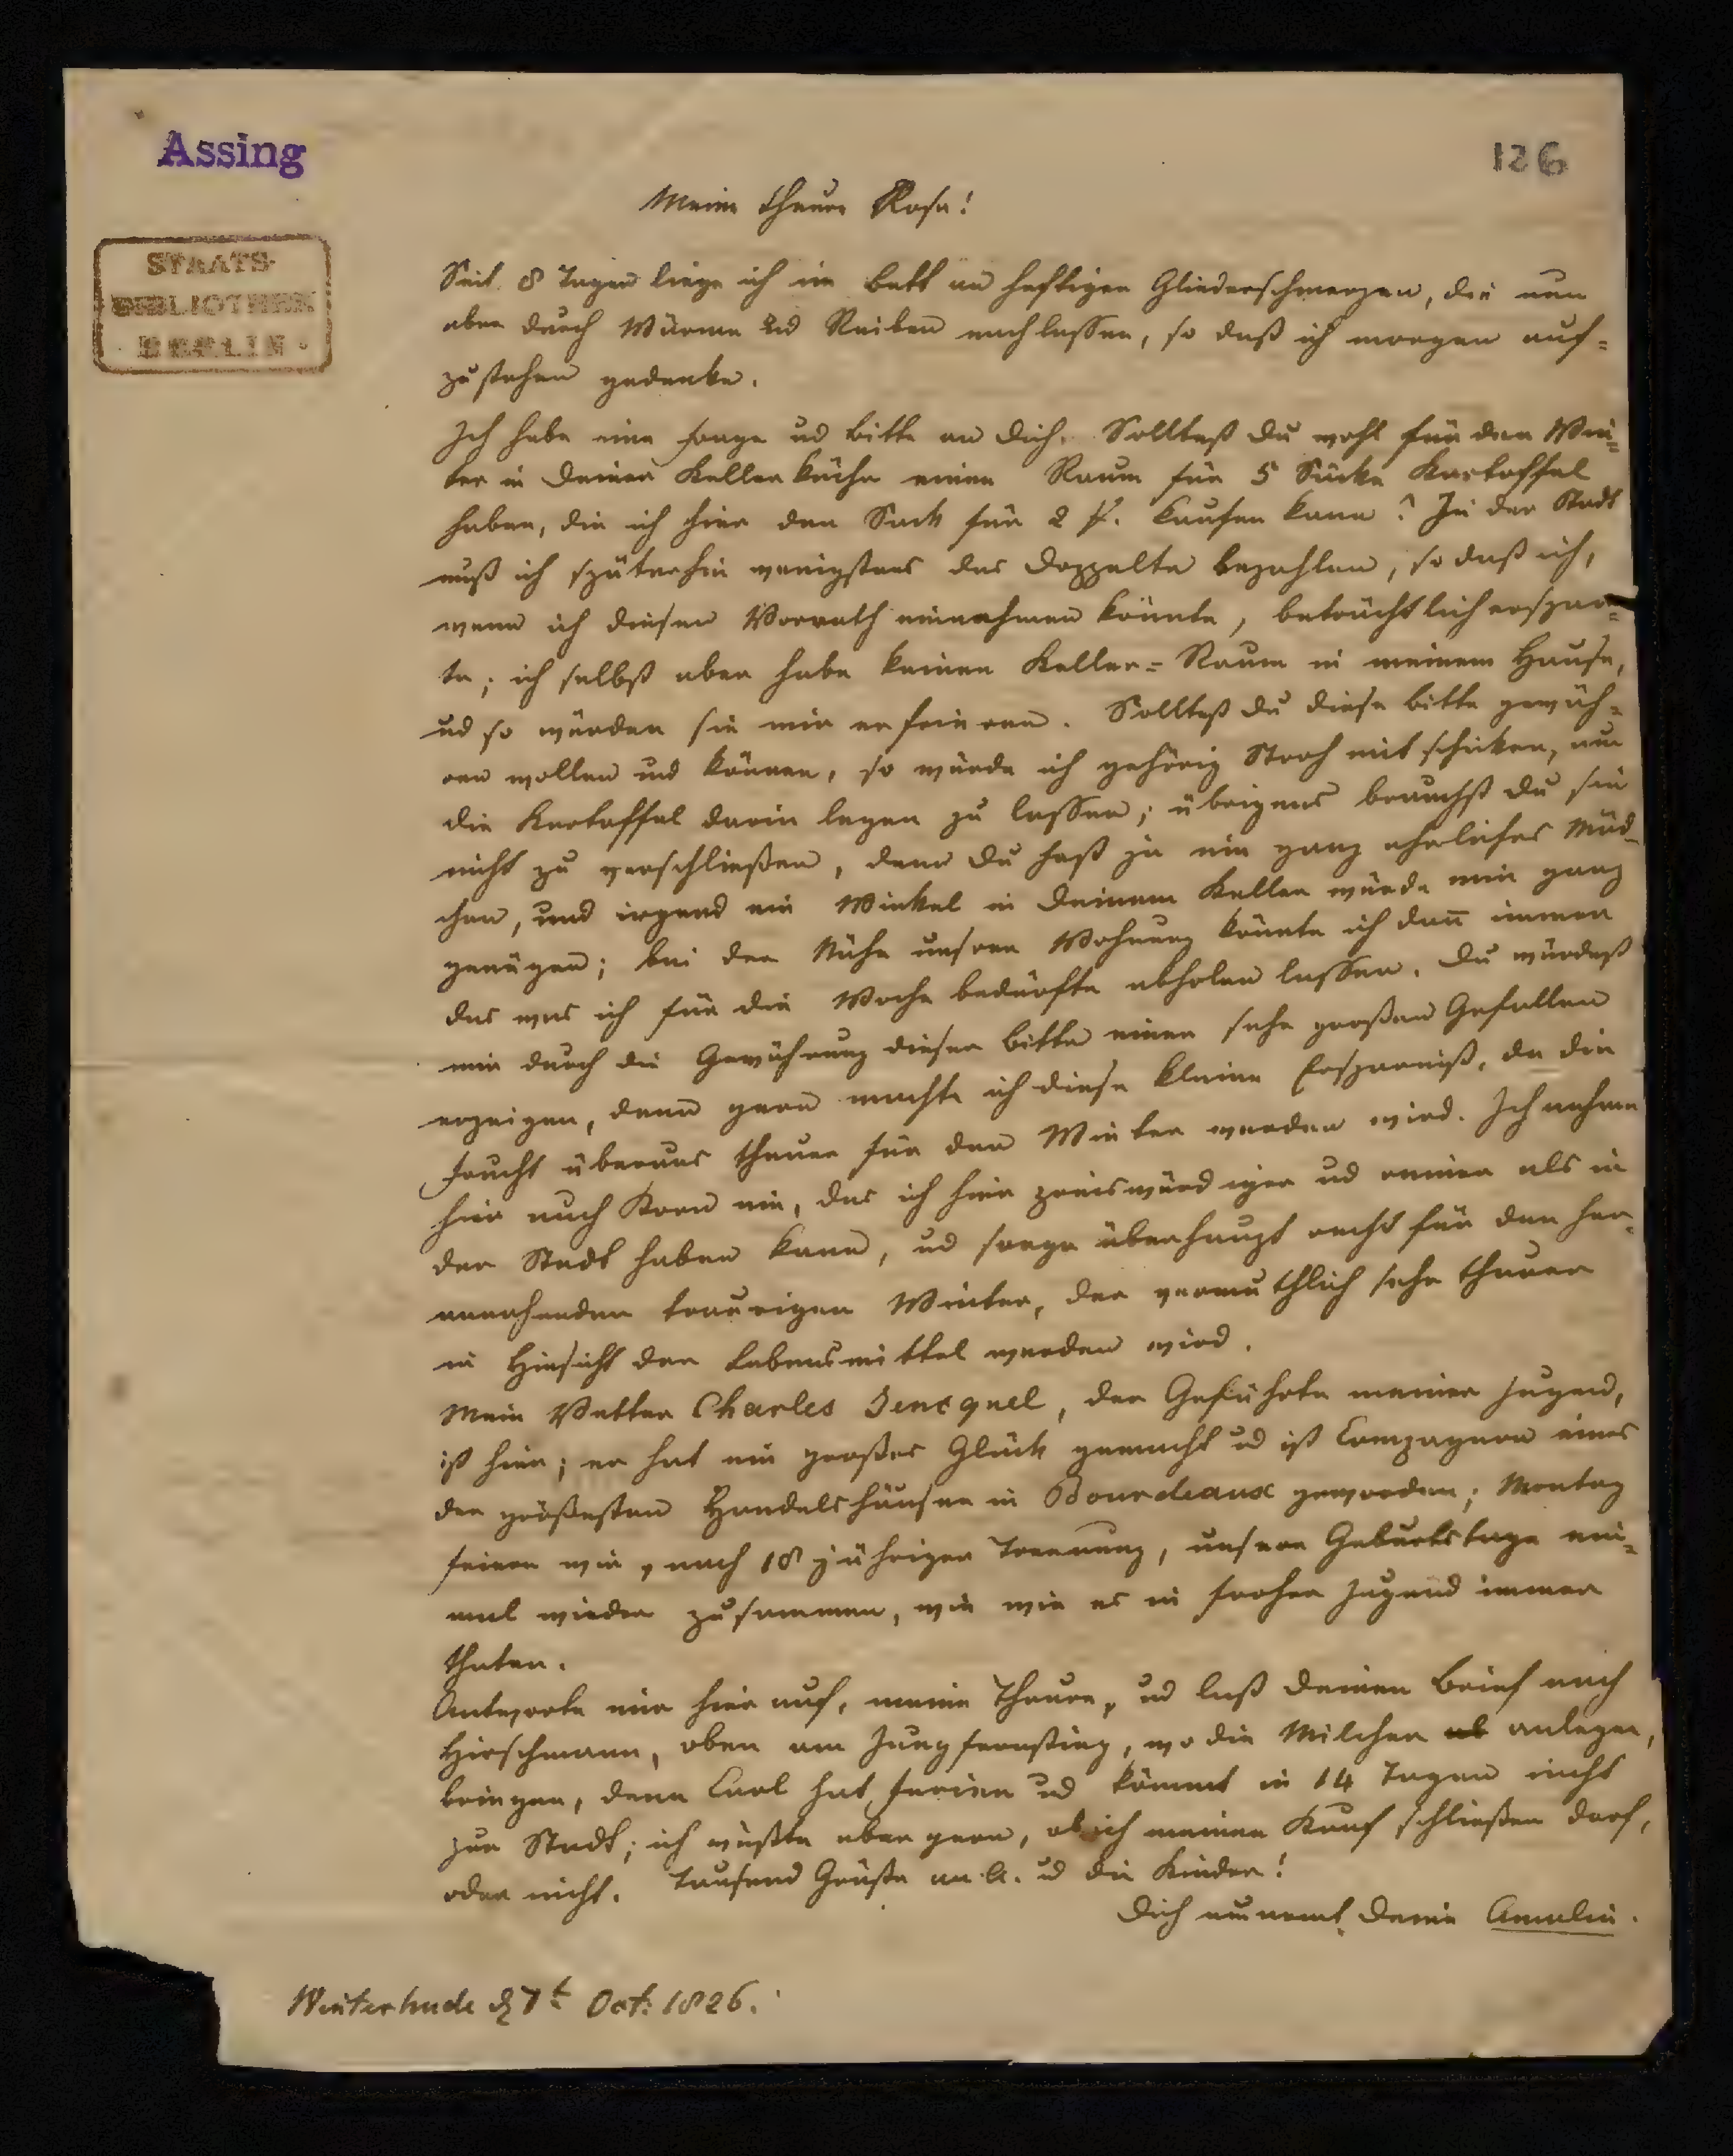 Assing
126
STAATS-
BIBLIOTHEK
· BERLIN ·
Meine theure Rosa!
Seit 8 Tagen liege ich im Bett an heftigen Gliederschmerzen, die nun
aber durch Wärme und Reiben nachlassen, so daß ich morgen auf=
zustehen gedenke.
Ich habe eine Frage ud Bitte an Dich. Solltest Du wohl für den Win=
ter in Deiner Kellerküche einen Raum für 5 Säcke Kartoffel
haben, die ich hier den Sack für 2 ƒ. kaufen kann? In der Stadt
muß ich späterhin wenigstens das Doppelte bezahlen, so daß ich,
wenn ich diesen Vorrath einnehmen könnte, beträchtlich erspar=
te; ich selbst aber habe keinen Keller=Raum in meinem Hause,
ud so würden sie mir erfrieren. Solltest Du diese Bitte gewäh=
ren wollen und können, so würde ich gehörig Stroh mit schicken, um
die Kartoffel darin legen zu lassen; übrigens brauchst Du sie
nicht zu verschließen, denn Du hast ja ein ganz ehrliches Mäd=
chen, und irgend ein Winkel in Deinem Keller würde mir ganz
genügen; bei der Nähe unsrer Wohnung könnte ich dañ immer
das was ich für die Woche bedürfte abholen lassen. Du würdest
mir durch die Gewährung dieser Bitte einen sehr großen Gefallen
erzeigen, denn gern machte ich diese kleine Ersparniß, da die
Frucht überaus theuer für den Winter werden wird. Ich nehme
hier auch Korn ein, das ich hier preiswürdiger ud reiner als in
der Stadt haben kann, ud sorge überhaupt recht für den her=
annahenden traurigen Winter, der vermuthlich sehr theuer
in Hinsicht der Lebensmittel werden wird.
Mein Vetter Charles Jencquel, der Gefährte meiner Jugend,
ist hier; er hat ein großes Glück gemacht ud ist Compagnon eines
der größesten Handelshäuser in Bourdeaux geworden; Montag
feiern wir, nach 18 jähriger Trennung, unsere Geburtstage ein=
mal wieder zusammen, wie wir es in froher Jugend immer
thaten.
Antworte mir hier auf, meine Theure, ud laß Deinen Brief nach
Hirschmann, oben am Jungfernstieg, wo die Milcher ab anlegen,
bringen, denn Carl hat Ferien ud kömmt in 14 Tagen nicht
zur Stadt; ich wüßte aber gern, ob ich meinen Kauf schließen darf,
oder nicht. Tausend Grüße an A. ud die Kinder!
Dich umarmt Deine Amalie.
Winterhude d 7t Oct. 1826.